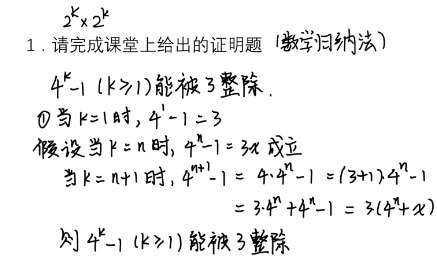 2^k × 2^k
1．请完成课堂上给出的证明题（数学归纳法）
4^k-1 (k≥1)能被3整除.
①当k=1时, 4^1-1=3
假设当k=n时, 4^n-1=3x 成立
当k=n+1时, 4^{n+1}-1 = 4·4^n-1 = (3+1)·4^n-1
= 3·4^n+4^n-1 = 3(4^n+x)
则 4^k-1 (k≥1)能被3整除